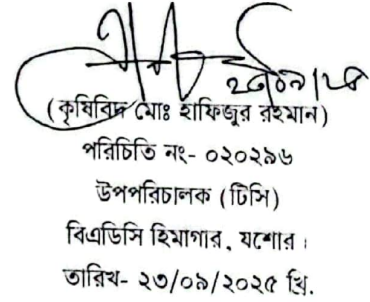 ২৩/০৯/২৫
(কৃষিবিদ মোঃ হাফিজুর রহমান)
পরিচিতি নং- ০২০২৯৬
উপপরিচালক (টিসি)
বিএডিসি হিমাগার, যশোর।
তারিখ- ২৩/০৯/২০২৫ খ্রি.